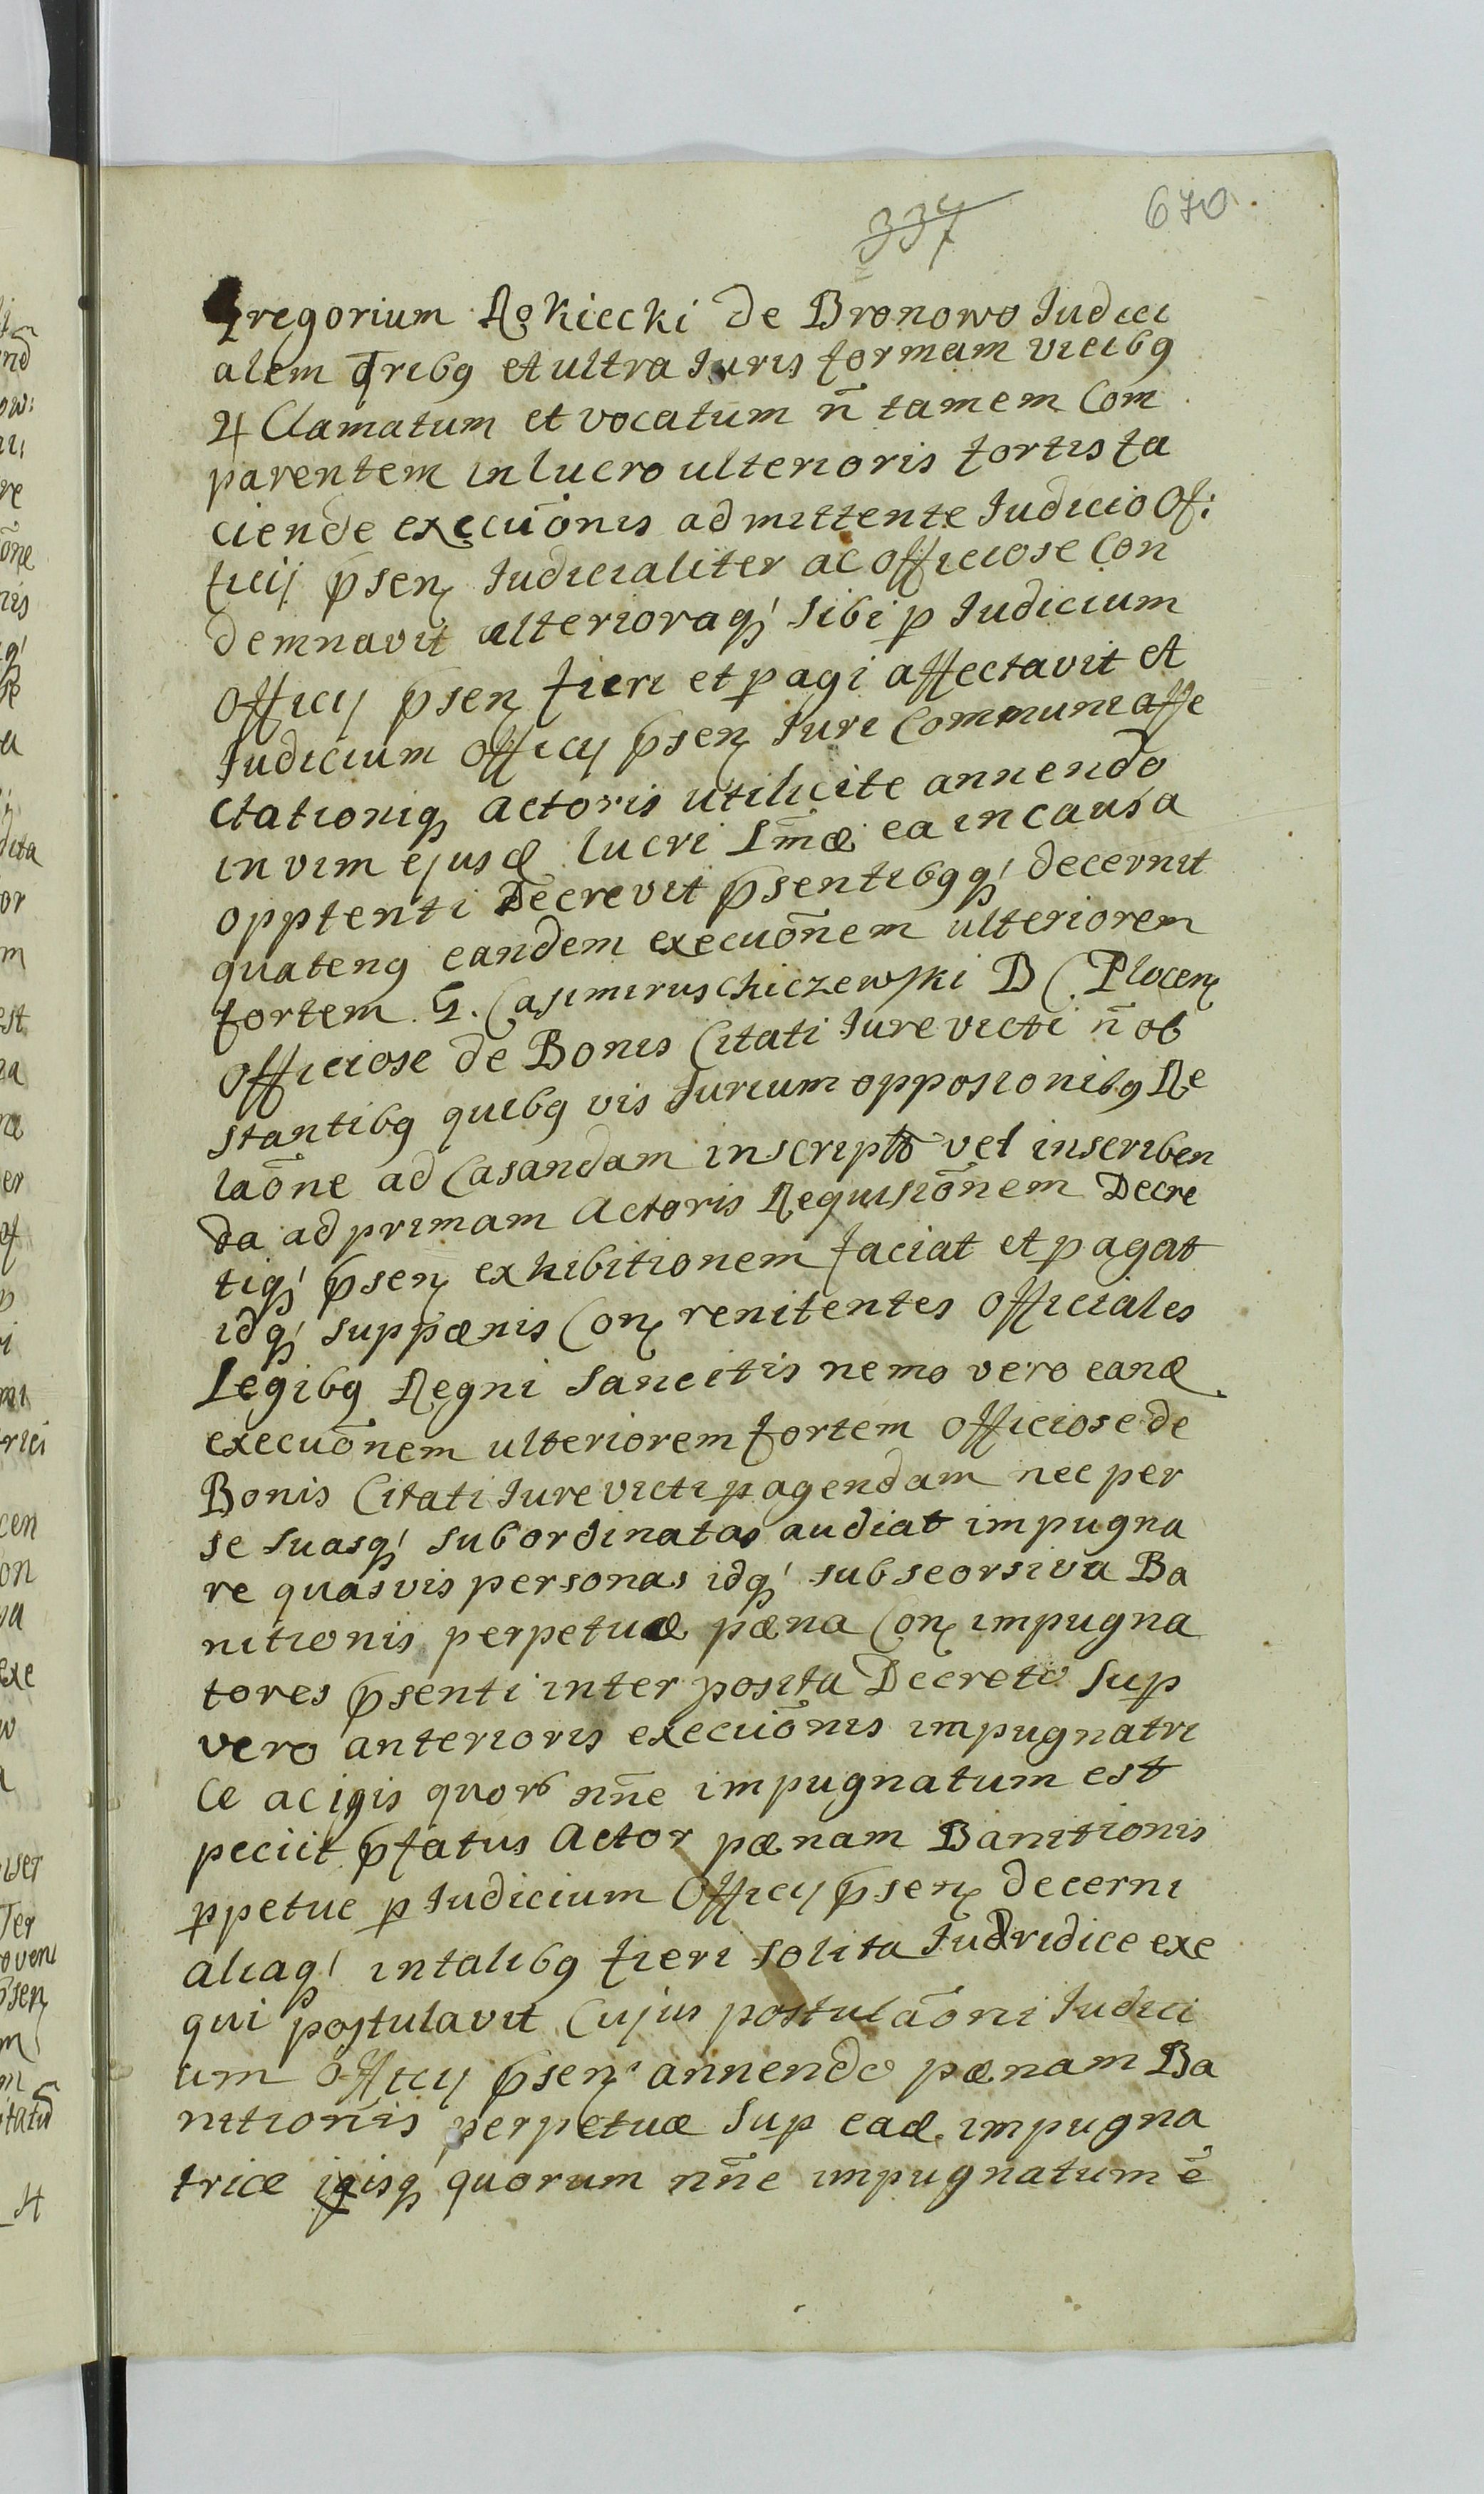 337
670
Gregorium Rokiecki de Bronowo Judici
alem Tribq et ultra Juris formam vicibq
Clamatum et vocatum n̄ tamem Com
parentem in lucro ulterioris fortis fa
ciende execuōnis admittente Judicio Of:
ficij p̄sen Judicialiter ac officiose Con
demnavit ulterioraq' sibi p Judicium
officij p̄sen fieri et pagi affectavit et
Judicium officij p̄sen Juri Communi affe
ctationiq actoris utilicite annendo
in vim ejusd lucri Im̄æ ea in causa
opptenti Decrevit p̄sentibqq' decernit
quatenq eandem execuōnem ulteriorem
fortem G. Casimirus Chiczewski B C. Plocen
officiose de Bonis Citati Jure victi n̄ ob
stantibq quibq vis Jurium opposionibq Re
laōne ad Casandam inscripto vel inscriben
da ad primam Actoris Requisiōnem Decre
tiq' p̄sen exhibitionem faciat et pagat
idq' sup pænis Con renitentes officiales
Legibq Regni Sancitis nemo vero eand
execuōnem ulteriorem fortem officiose de
Bonis Citati Jure victi pagendam nec per
se suasq' subordinatas audiat impugna
re quasvis personas idq' sub seorsiva Ba
nitionis perpetuæ pæna Con impugna
tores p̄senti inter posita Decreto Sup
vero anterioris execuōnis impugnatri
ce ac ipis quor nn̄e impugnatum est
peciit p̄fatus Actor pænam Banitionis
ppetue p Judicium Officij p̄sen decerni
aliaq' in talibq fieri solita Juridice exe
qui postulavit Cujus postulaōni Judici
um Officij p̄sen annendo pænam Ba
nitionis perpetuæ Sup ead impugna
trice ipisq quorum nn̄e impugnatum ē